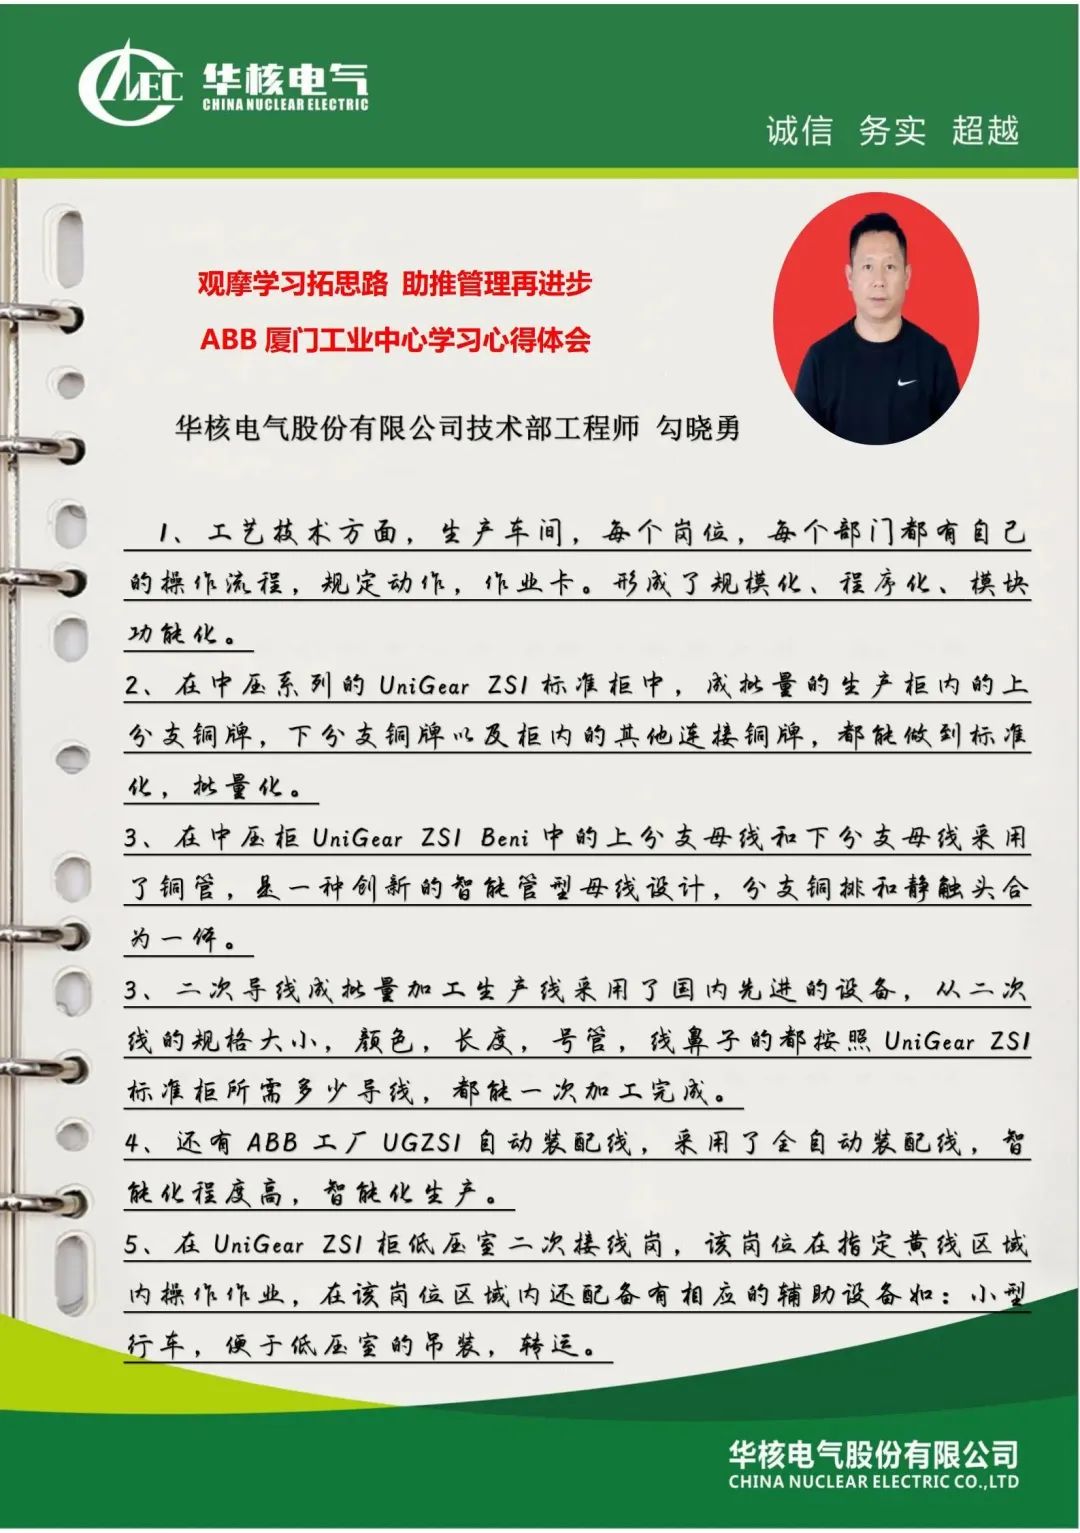 AEC 华核电气
CHINA NUCLEAR ELECTRIC
诚信 务实 超越
观摩学习拓思路 助推管理再进步
ABB 厦门工业中心学习心得体会
华核电气股份有限公司技术部工程师 勾晓勇
1、工艺技术方面，生产车间，每个岗位，每个部门都有自己
的操作流程，规定动作，作业卡。形成了规模化、程序化、模块
功能化。
2、在中压系列的 UniGear ZS1 标准柜中，成批量的生产柜内的上
分支铜牌，下分支铜牌以及柜内的其他连接铜牌，都能做到标准
化，批量化。
3、在中压柜 UniGear ZS1 Beni 中的上分支母线和下分支母线采用
了铜管，是一种创新的智能管型母线设计，分支铜排和静触头合
为一体。
3、二次导线成批量加工生产线采用了国内先进的设备，从二次
线的规格大小，颜色，长度，号管，线鼻子的都按照 UniGear ZS1
标准柜所需多少导线，都能一次加工完成。
4、还有 ABB 工厂 UGZS1 自动装配线，采用了全自动装配线，智
能化程度高，智能化生产。
5、在 UniGear ZS1 柜低压室二次接线岗，该岗位在指定黄线区域
内操作作业，在该岗位区域内还配备有相应的辅助设备如：小型
行车，便于低压室的吊装，转运。
华核电气股份有限公司
CHINA NUCLEAR ELECTRIC CO.,LTD